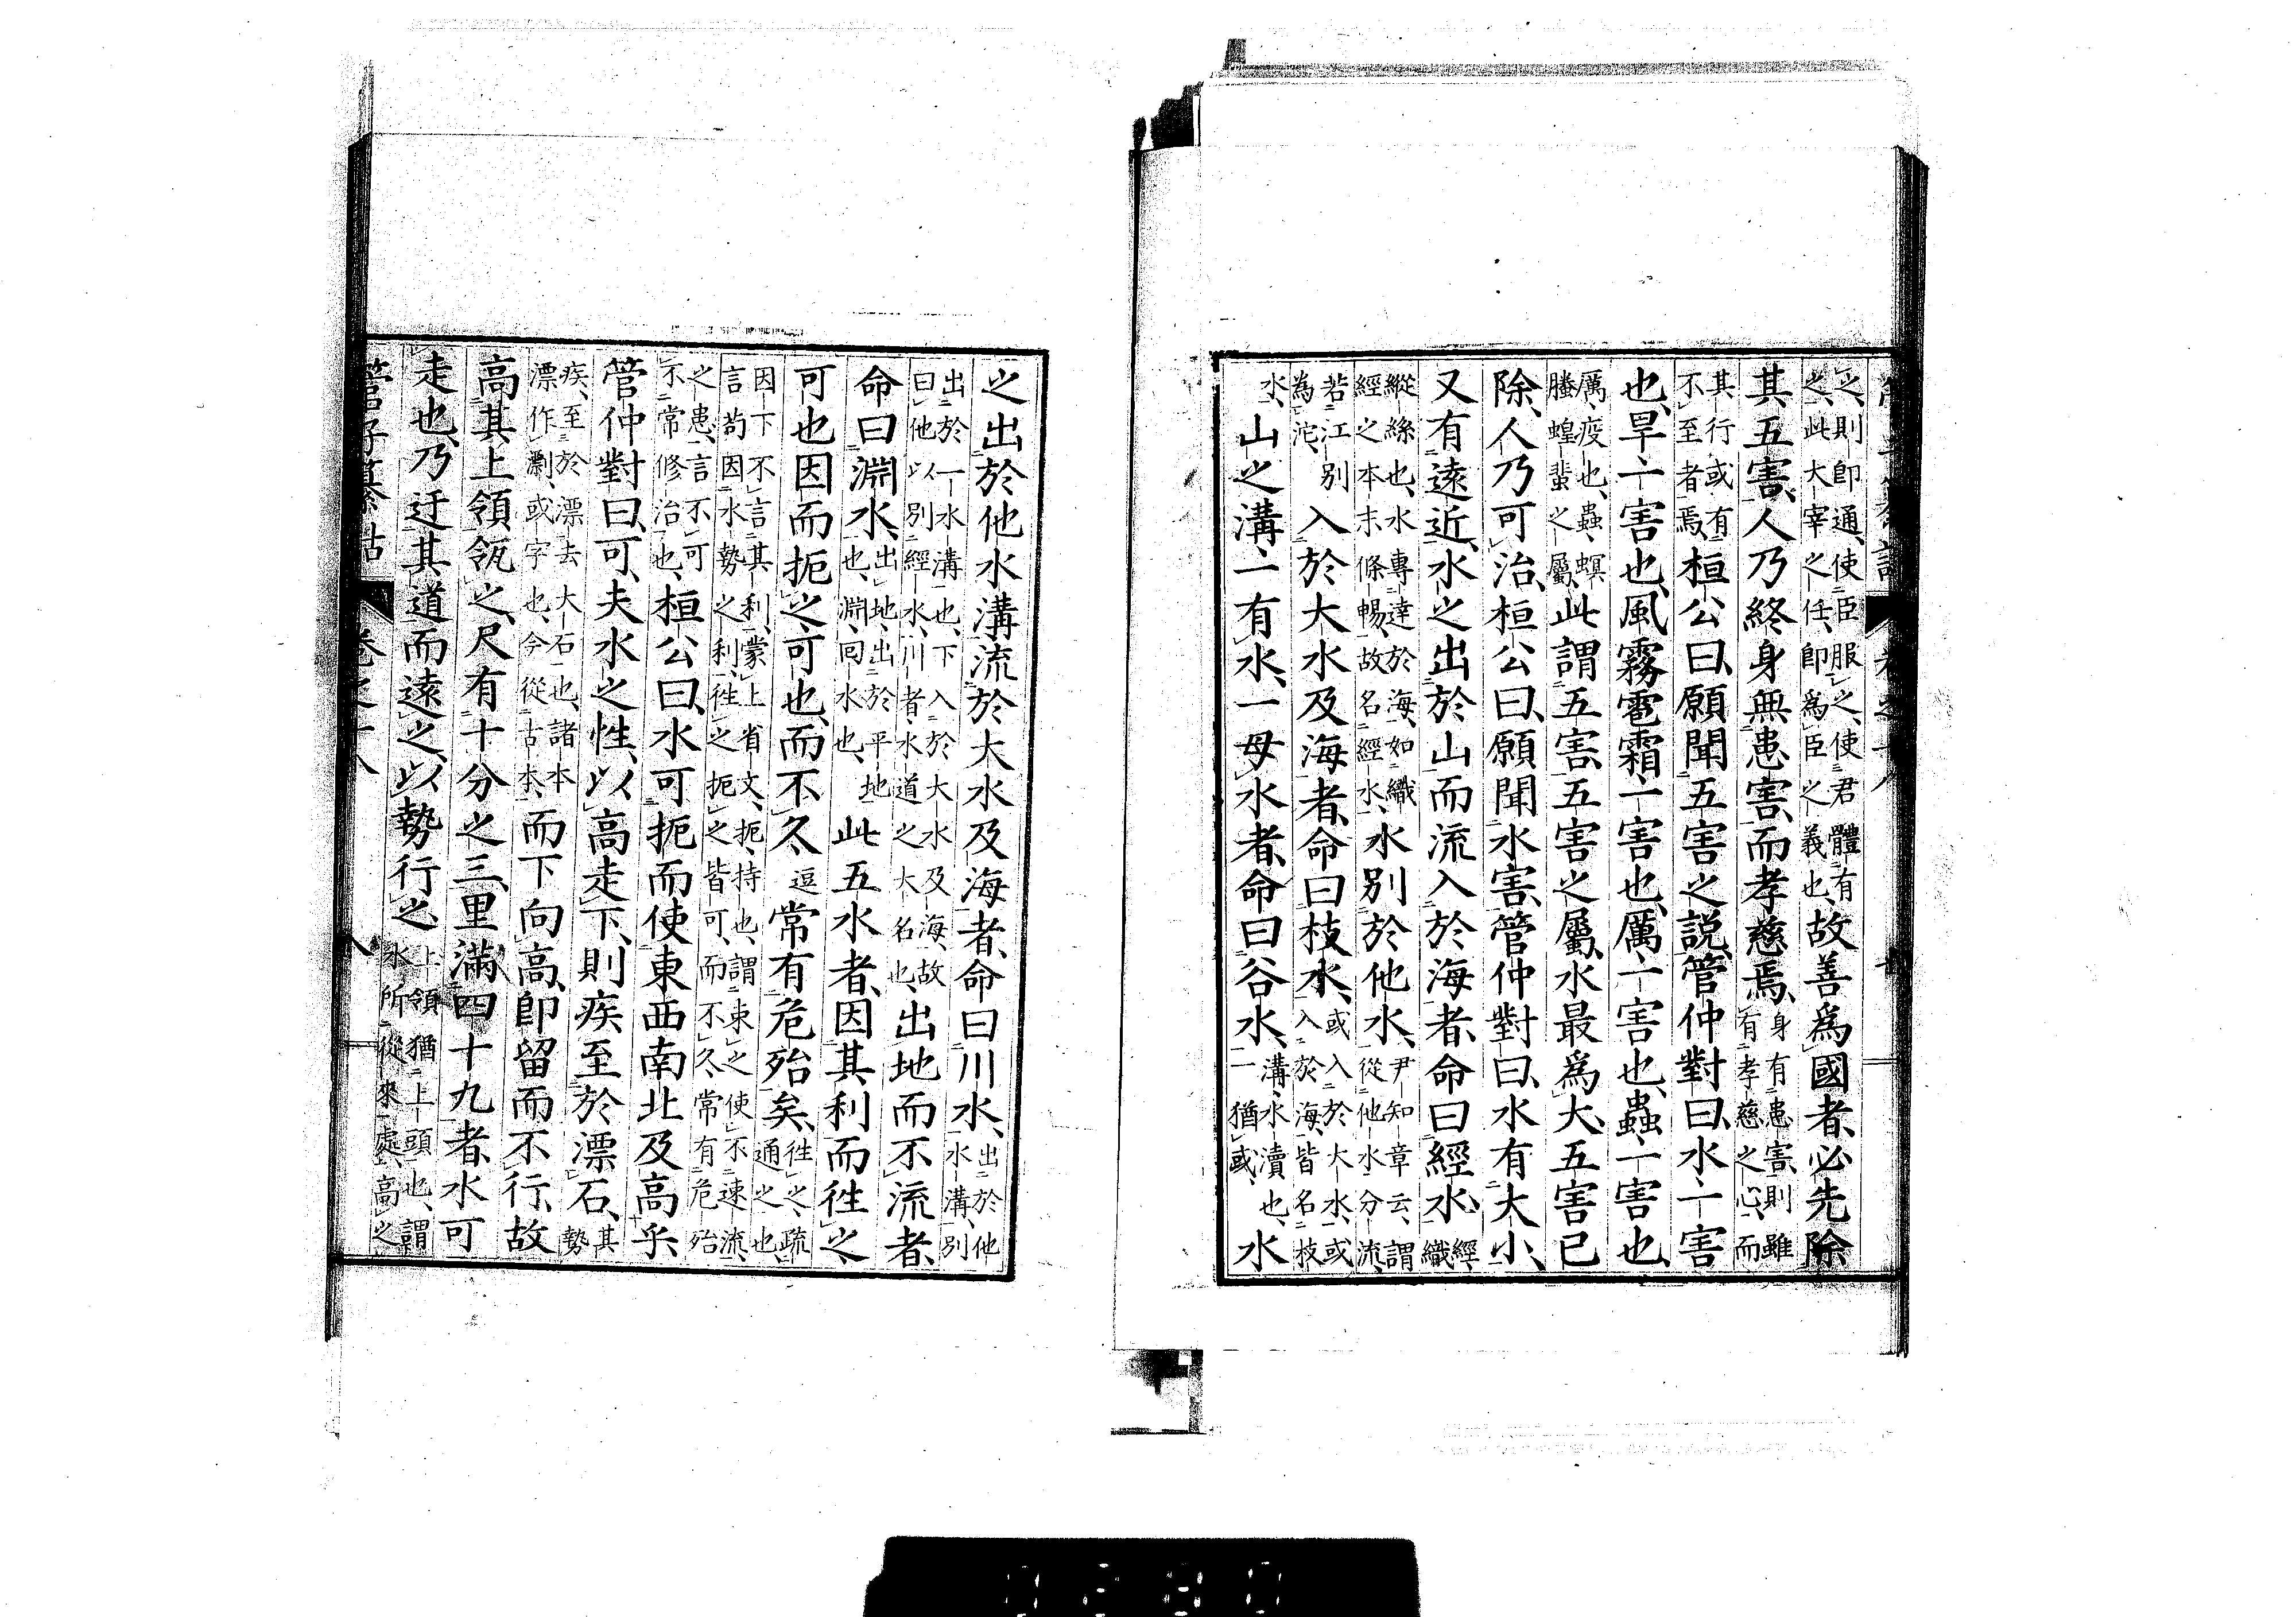 之、則卽通、使臣服之、使君體有
之、此大宰之任、卽爲臣之義也、故善爲國者、必先除
其五害、人乃終身無患害、而孝慈焉、身有患害、則雖有孝慈之心、而
其行或有不至者焉、桓公曰、願聞五害之説、管仲對曰、水一害
也、旱一害也、風霧雹霜一害也、厲一害也、蟲一害也
厲、疫也、蟲、螟螣蝗蜚之屬、此謂五害、五害之屬、水最爲大、五害已
除、人乃可治、桓公曰、願聞水害、管仲對曰、水有大小、
又有遠近、水之出於山而流入於海者、命曰經水、經、織
縱絲也、水專達於海、如織經之本末條暢、故名經水、水別於他水、尹知章云、謂從他水分流、
若江別爲沱、入於大水及海者、命曰枝水、或入於大水、或入於海、皆名枝
水、山之溝、一有水、一毋水者、命曰谷水、溝、水瀆也、一猶或、水
之出於他水溝流於大水及海者、命曰川水、出於他水溝、別
出於一水溝也、下入於大水及海、故曰他以別經水、川者、水道之大名也、出地而不流者、
命曰淵水、出地、出於平地也、淵、回水也、此五水者、因其利而往之
可也、因而扼之、可也、而不久逗常有危殆矣、往之、疏通之也、
因下不言其利、蒙上省文、扼、持也、謂束之使不速流、言苟因水勢之利、往之扼之皆可、而不久常有危殆
之患、言不可不常修治也、桓公曰、水可扼而使東西南北及高乎、
管仲對曰、可、夫水之性、以高走下、則疾至於漂石、其勢
疾、至於漂去大石也、諸本漂作㶟、或字也、今從古本、而下向高、卽留而不行、故
高其上領瓴之、尺有十分之三、里滿四十九者、水可
走也、乃迂其道而遠之、以勢行之、上領猶上頭也、謂水所從來處、高之
管子纂詁 卷之十八 八